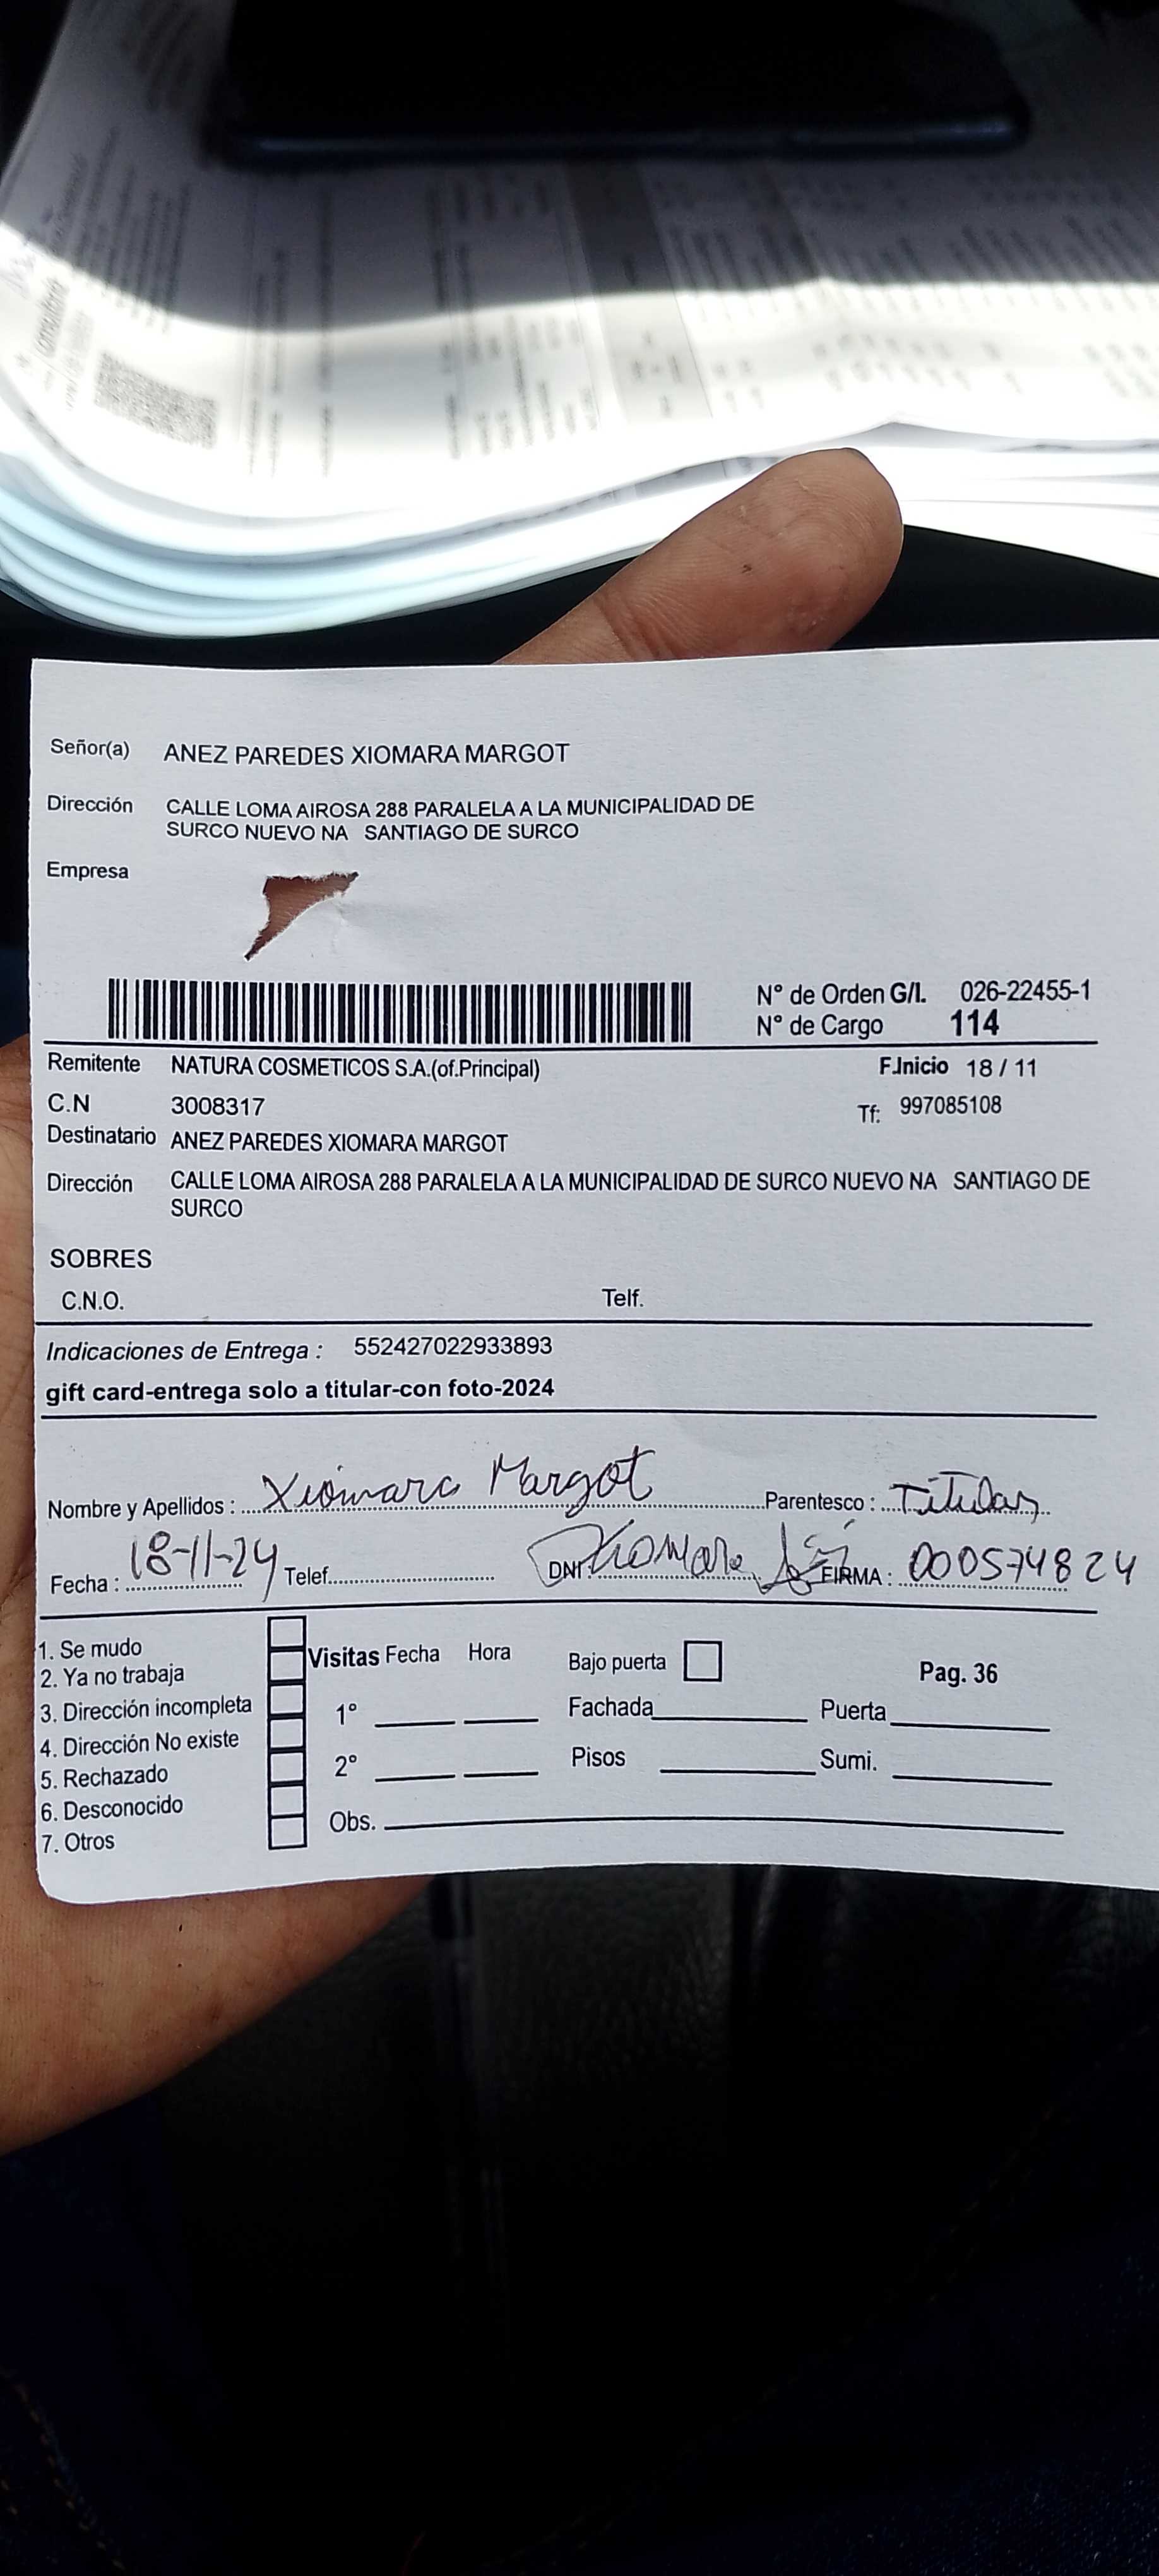 Señor(a) ANEZ PAREDES XIOMARA MARGOT
Dirección CALLE LOMA AIROSA 288 PARALELA A LA MUNICIPALIDAD DE
SURCO NUEVO NA SANTIAGO DE SURCO
Empresa
N° de Orden G/I. 026-22455-1
N° de Cargo 114
Remitente NATURA COSMETICOS S.A.(of.Principal) F.Inicio 18 / 11
C.N 3008317 Tf: 997085108
Destinatario ANEZ PAREDES XIOMARA MARGOT
Dirección CALLE LOMA AIROSA 288 PARALELA A LA MUNICIPALIDAD DE SURCO NUEVO NA SANTIAGO DE
SURCO
SOBRES
C.N.O. Telf.
Indicaciones de Entrega : 552427022933893
gift card-entrega solo a titular-con foto-2024
Nombre y Apellidos : Xiomara Margot Parentesco : Titular
Fecha : 18-11-24 Telef. DNI: Xiomara FIRMA : 000574824
1. Se mudo
2. Ya no trabaja
3. Dirección incompleta
4. Dirección No existe
5. Rechazado
6. Desconocido
7. Otros
Visitas Fecha Hora
1°
2°
Obs.
Bajo puerta Pag. 36
Fachada Puerta
Pisos Sumi.